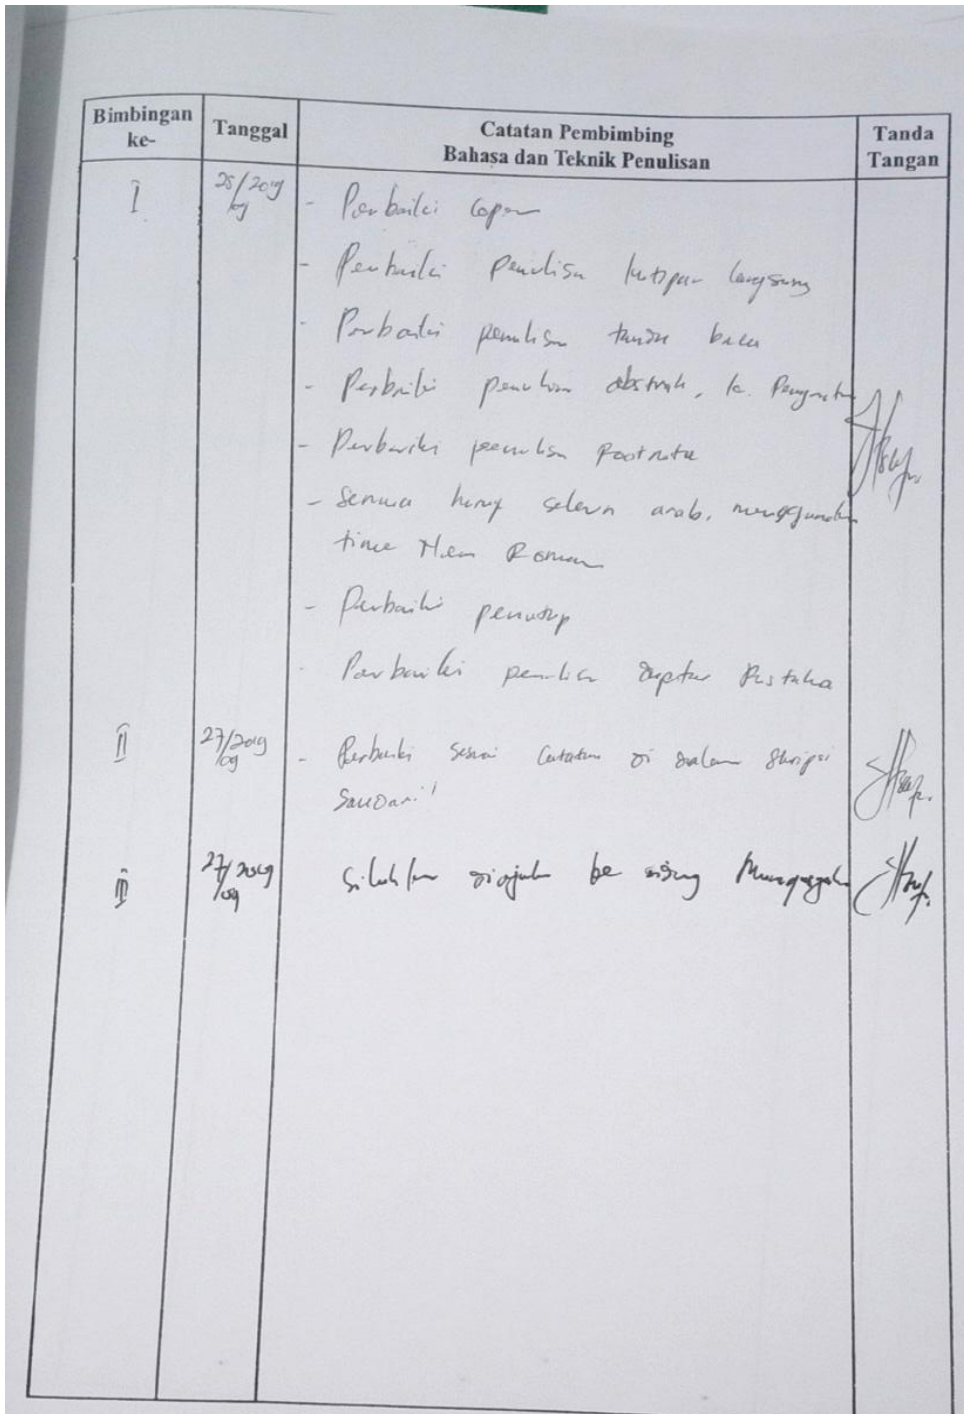 Bimbingan ke- Tanggal Catatan Pembimbing Bahasa dan Teknik Penulisan Tanda Tangan
I 25/2019 /09 - Perbaiki cover
- Perbaiki penulisan kutipan langsung
- Perbaiki penulisan tanda baca
- Perbaiki penulisan abstrak, k. Pengantar
- Perbaiki penulisan footnote
- Semua huruf selain arab, menggunakan
time New Roman
- Perbaiki penutup
- Perbaiki penulisan daftar Pustaka
II 27/2019 /09 - Perbaiki sesuai catatan di dalam Skripsi
Saudari!
III 27/2019 /09 Silahkan diajukan ke sidang Munaqasyah